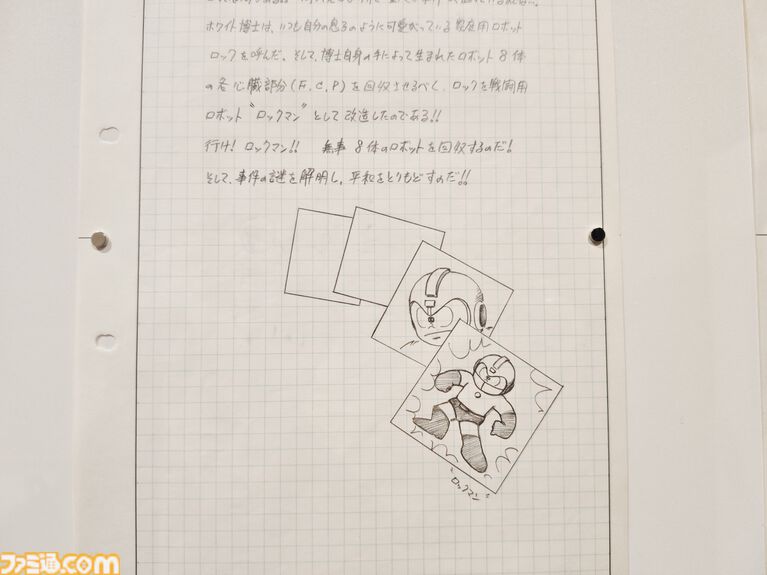 ホワイト博士は、いつも自分の息子のように可愛がっている家庭用ロボット
ロックを呼んだ。そして、博士自身の手によって生まれたロボット8体
の各心臓部分(F.C.P)を回収させるべく、ロックを戦闘用
ロボット"ロックマン"として改造したのである!!
行け!ロックマン!! 無事8体のロボットを回収するのだ!
そして、事件の謎を解明し、平和をとりもどすのだ!!
"ロックマン"
ファミ通.com